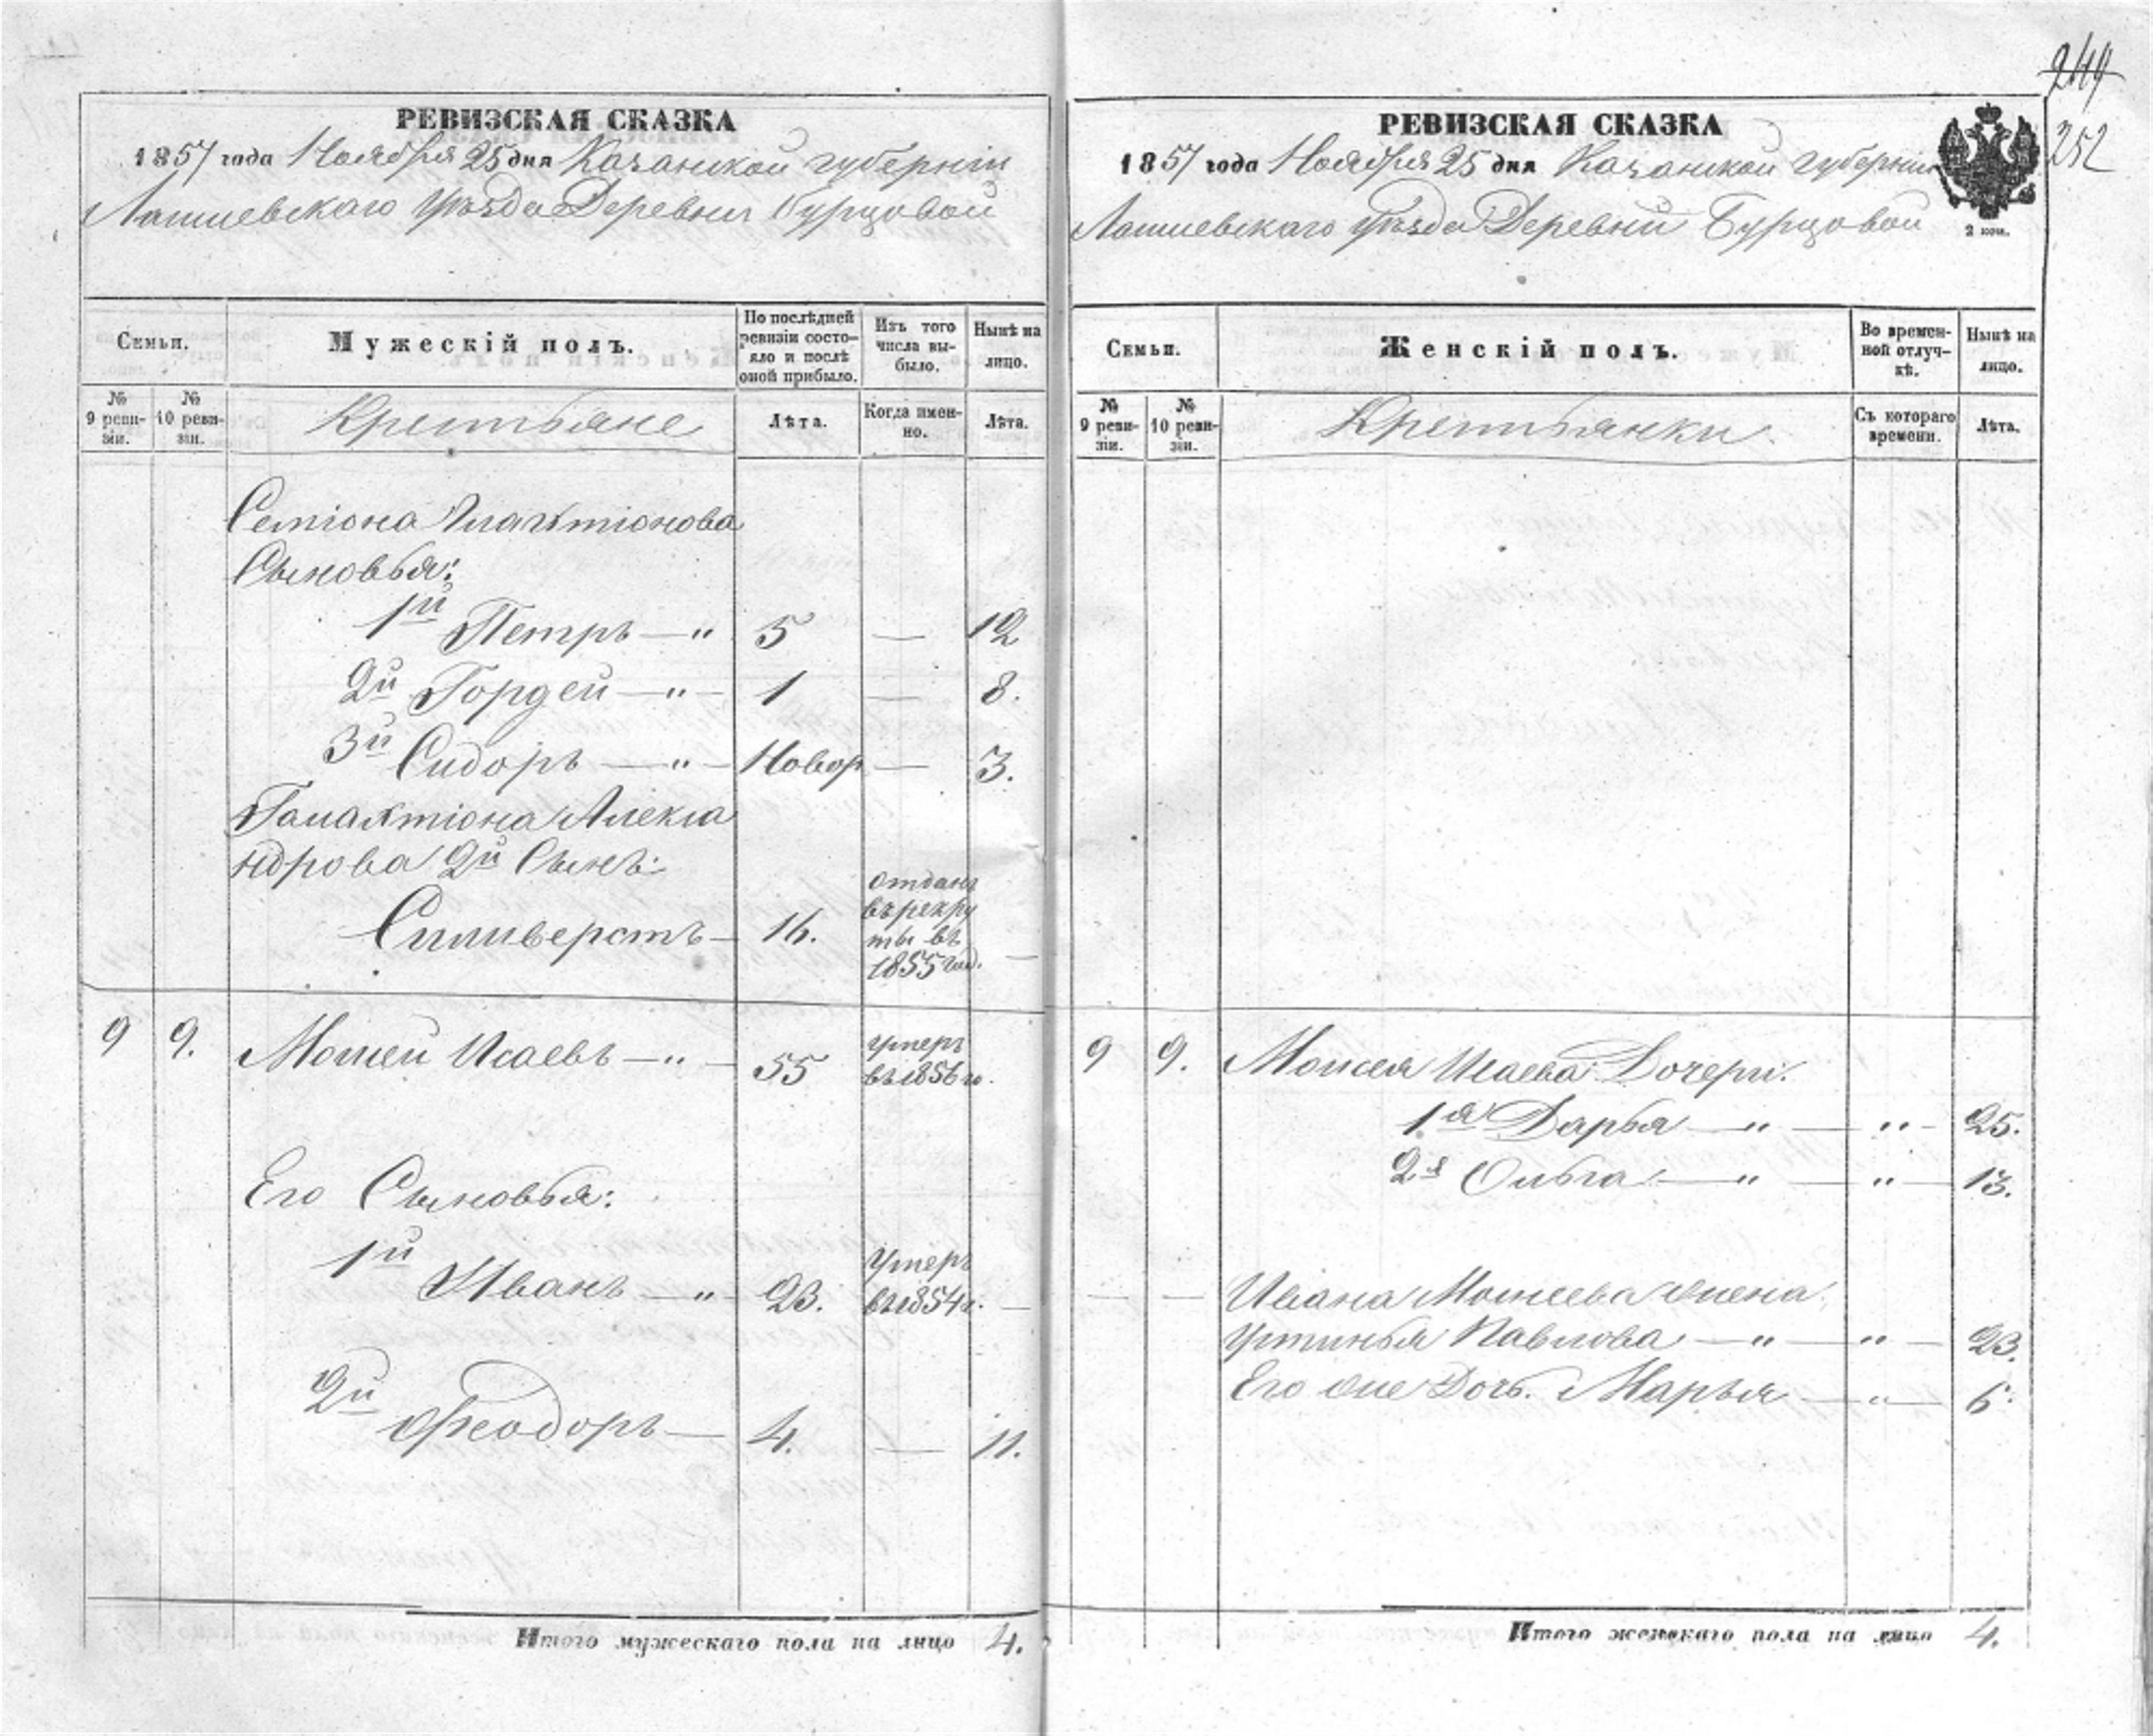 249
252
РЕВИЗСКАЯ СКАЗКА
1857 года Ноября 25 дня Казанской губерніи
Лаишевскаго Уѣзда Деревни Бурцовой
Семьи.
Мужескій полъ.
По послѣдней ревизіи состояло и послѣ оной прибыло.
Изъ того числа выбыло.
Нынѣ на лицо.
№ 9 ревизіи.
№ 10 ревизіи.
Крестьяне
Лѣта.
Когда именно.
Лѣта.
Семіона Галактіонова
Сыновья:
1й Петръ — " 5 — 12
2й Гордей — " — 1 — 8.
3й Сидоръ — " — Новор — 3.
Галактіона Алекса
ндрова 2й Сынъ:
Силиверстъ — 16. отданъ
въ рекру
ты въ
1855 год. —
9 9. Моисей Исаевъ — " — 55 умеръ
въ 1856 го.
Его Сыновья:
1й Иванъ — " — 23. Умеръ
въ 1854 г. —
2й Феодоръ — 4. — 11.
Итого мужескаго пола на лицо 4.
РЕВИЗСКАЯ СКАЗКА
1857 года Ноября 25 дня Казанской губерніи
Лаишевскаго Уѣзда Деревни Бурцовой
2 коп.
Семьи.
Женскій полъ.
Во временной отлучкѣ.
Нынѣ на лицо.
№ 9 ревизіи.
№ 10 ревизіи.
Крестьянки
Съ котораго времени.
Лѣта.
9 9. Моисея Исаева Дочери.
1я Дарья — " — " — 25.
2я Ольга — " — " — 13.
— — Ивана Моисеева жена
Устинья Павлова — " — " — 23.
Его же Дочь. Марья — " — 6.
Итого женскаго пола на лицо 4.